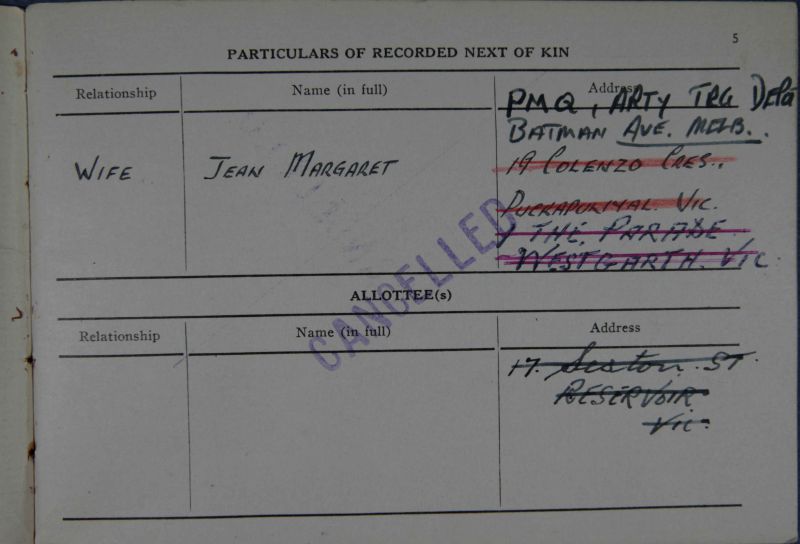 5
PARTICULARS OF RECORDED NEXT OF KIN
Relationship Name (in full) Address
PMQ, ARTY TRG DEPÔ
BATMAN AVE. MELB.
WIFE JEAN MARGARET 19 COLENZO CRES.,
PUCKAPUNYAL VIC.
THE PARADE
WESTGARTH. VIC
CANCELLED
ALLOTTEE(s)
Relationship Name (in full) Address
17. Seston ST.
RESERVOIR
VIC.